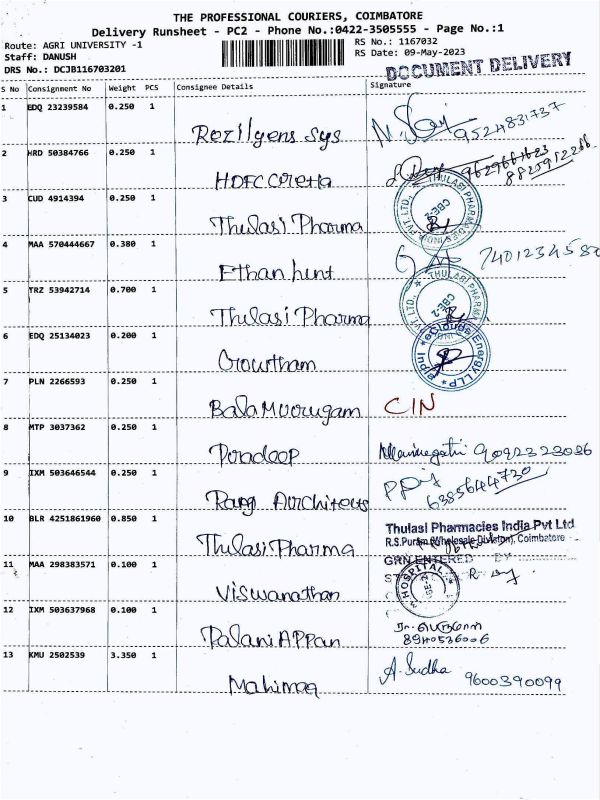 THE PROFESSIONAL COURIERS, COIMBATORE
Delivery Runsheet - PC2 - Phone No.:0422-3505555 - Page No.:1
Route: AGRI UNIVERSITY -1
RS No.: 1167032
Staff: DANUSH
RS Date: 09-May-2023
DRS No.: DCJB116703201
DOCUMENT DELIVERY
S No Consignment No Weight PCS Consignee Details Signature
1 EDQ 23239584 0.250 1
Rezilyens Sys 9524831737
2 HRD 50384766 0.250 1
HDFC 8825912266
3 CUD 4914394 0.250 1
Thulasi Pharma
THULASI PHARMACIES INDIA PVT LTD., CBE-2
4 MAA 570444667 0.380 1
Ethan hunt
5 TRZ 53942714 0.700 1
Thulasi Pharma
THULASI PHARMACIES INDIA PVT LTD., CBE-2
6 EDQ 25134023 0.200 1
Gowtham
eClouds Energy LLP
7 PLN 2266593 0.250 1
Bala Murugam CIN
8 MTP 3037362 0.250 1
Pradeep 9092323036
9 IXM 503646544 0.250 1
Rang Architects 6385644730
10 BLR 4251861960 0.850 1
Thulasi Pharma
Thulasi Pharmacies India Pvt Ltd
R.S.Puram (Wholesale Division), Coimbatore
GRN ENTERED BY
11 MAA 298383571 0.100 1
Viswanathan
HOSPITAL
12 IXM 503637968 0.100 1
Palani APPan
8940536006
13 KMU 2502539 3.350 1
Mahimaa A. Sudha 9600390099